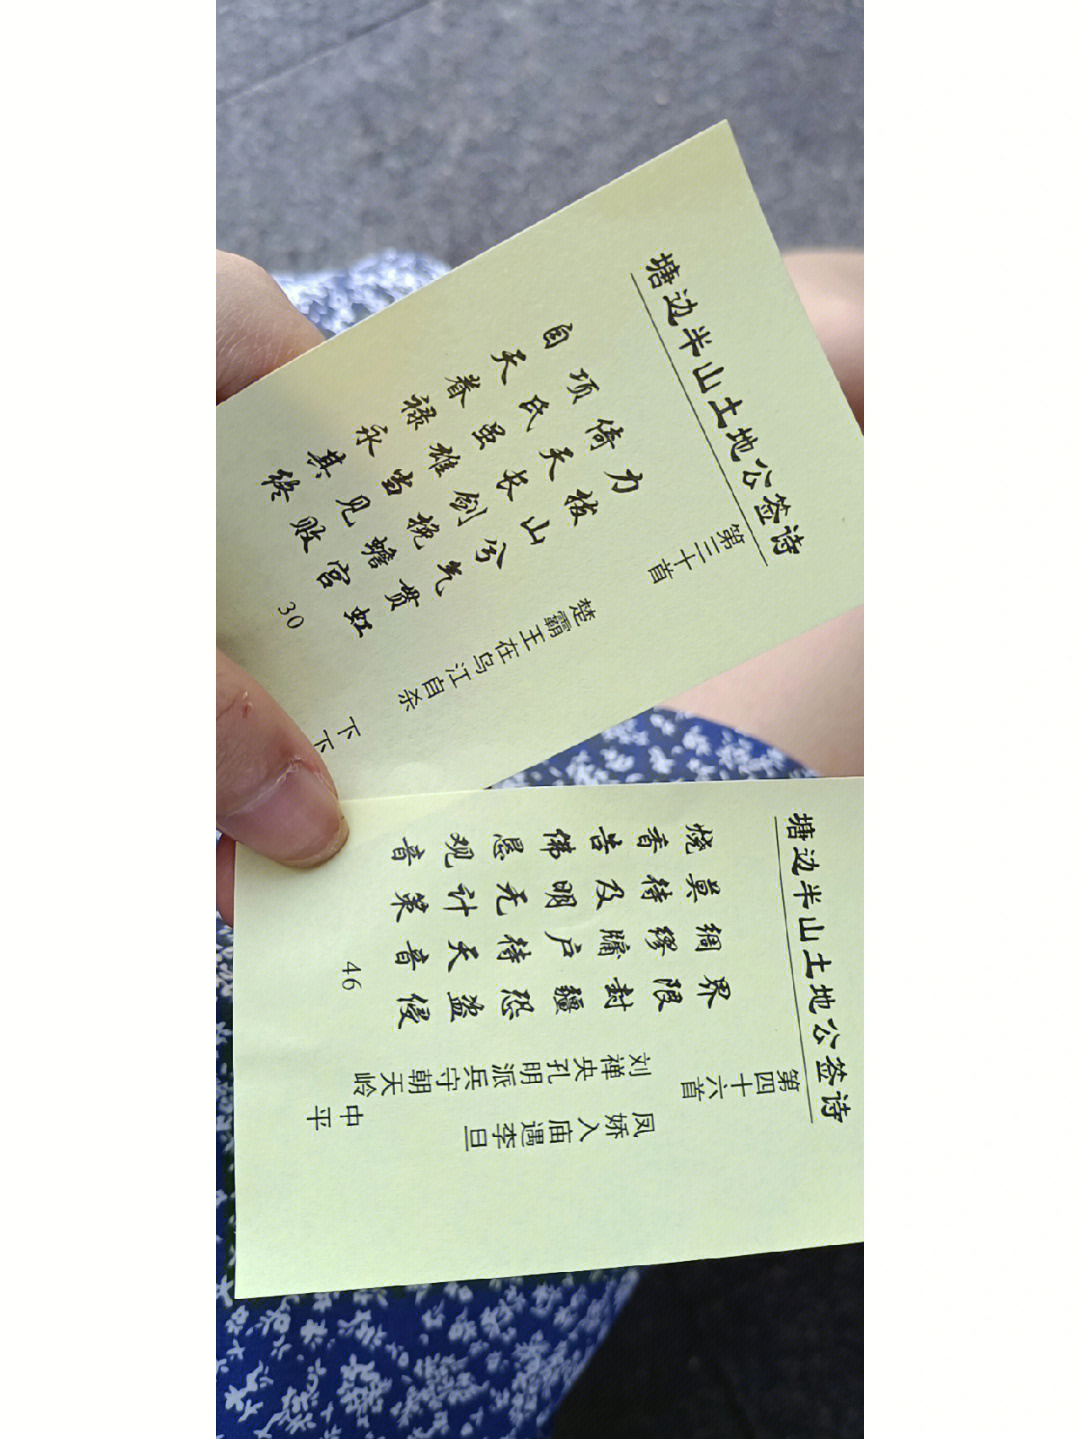 塘边半山土地公签诗
第三十首
楚霸王在乌江自杀
下下
力拔山兮气贯虹
倚天长剑挽蟾宫
项氏虽雄当见败
自天眷禄永其终
30
塘边半山土地公签诗
第四十六首
凤娇入庙遇李旦
刘禅央孔明派兵守朝天岭
中平
界限封疆恐盗侵
绸缪牖户待天音
莫待及明无计策
烧香告佛恳观音
46